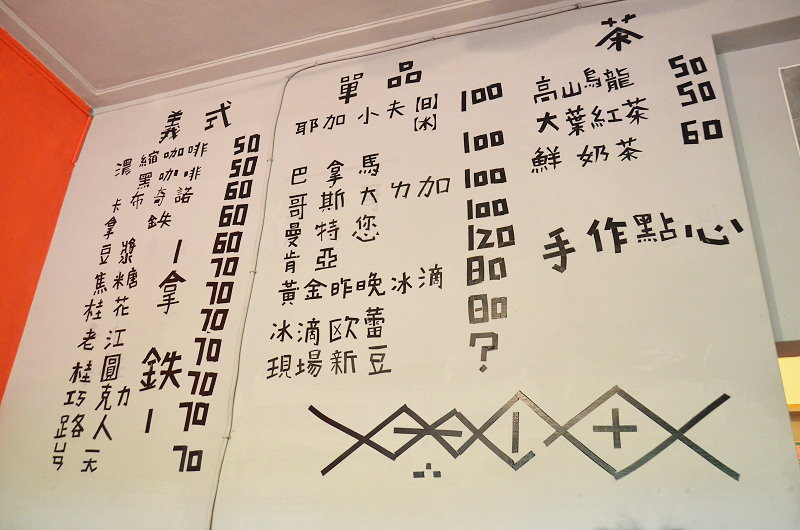 義式
濃縮咖啡 50
黑咖啡 50
卡布奇諾 60
拿鉄 60
豆漿 60
焦糖 70
桂花 70
老江 70
桂圓 70
巧克力 70
路人 70
天 70
ー拿鉄ー
單品
耶加小夫[日][水] 100
巴拿馬 100
哥斯大ㄌ加 100
曼特您 100
肯亞 120
黃金昨晚冰滴 80
冰滴欧蕾 80
現場新豆 ?
茶
高山烏龍 50
大葉紅茶 50
鮮奶茶 60
手作點心